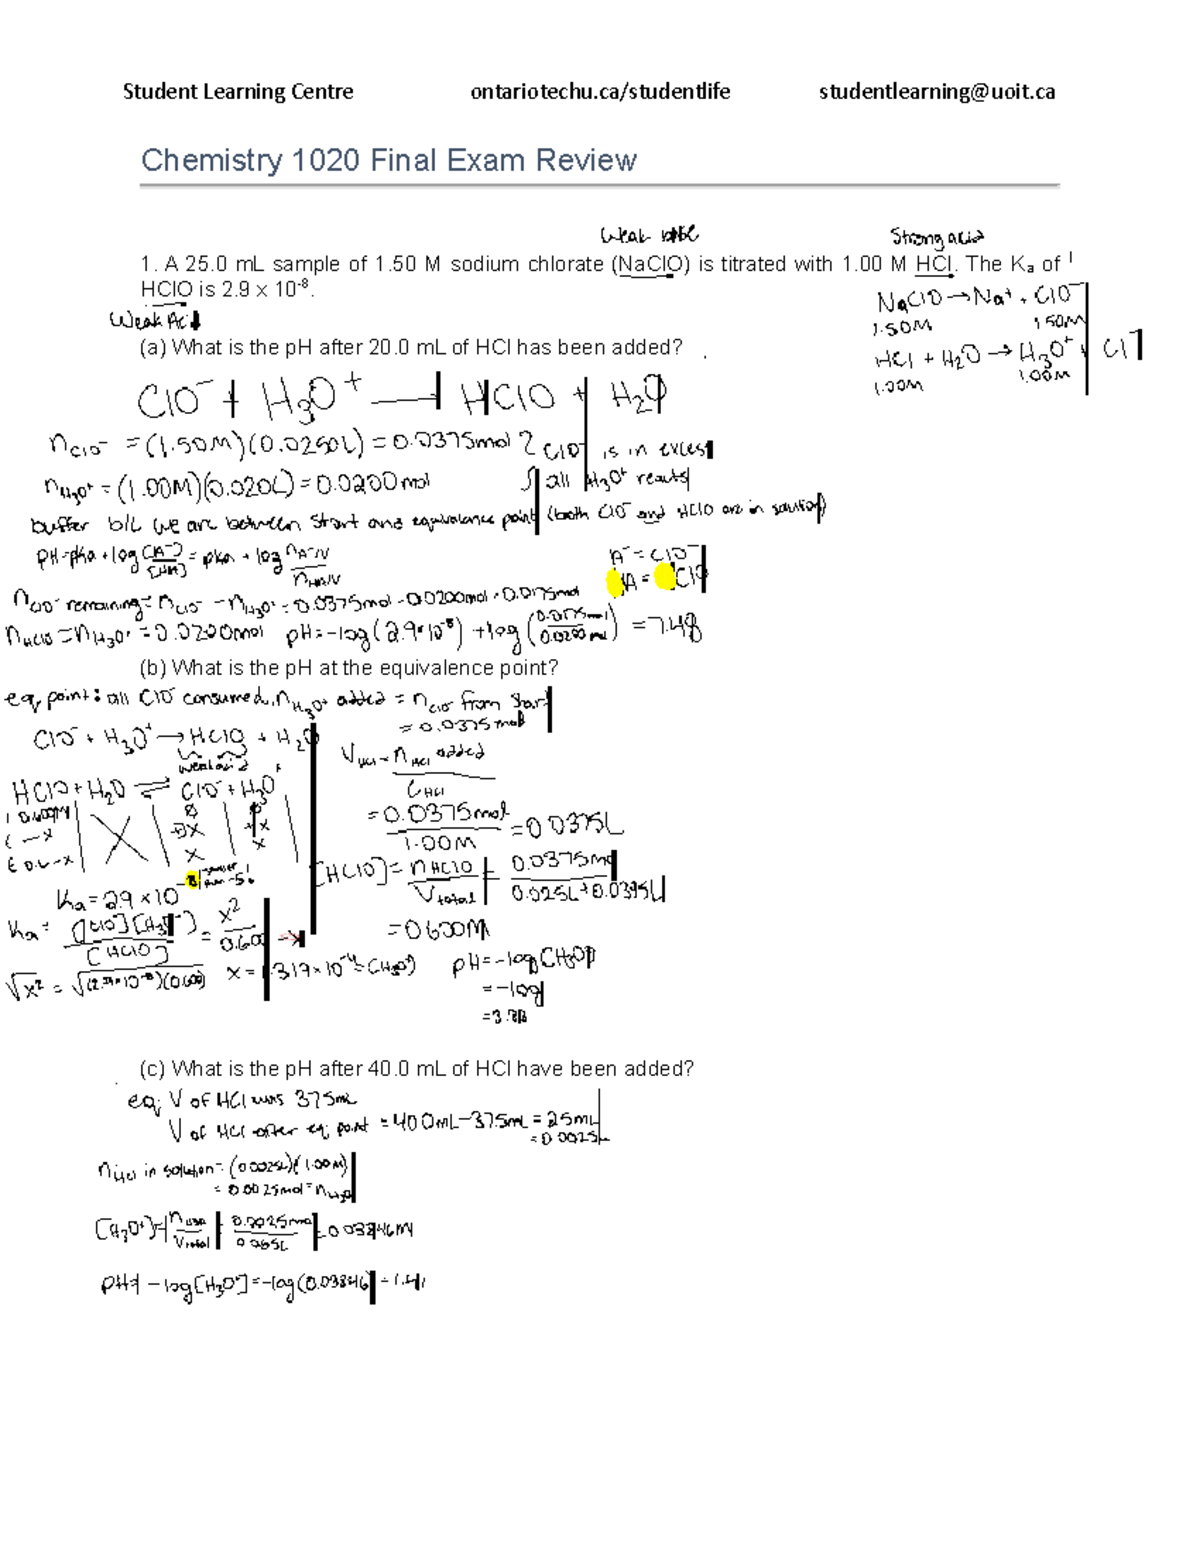 Student Learning Centre ontariotechu.ca/studentlife studentlearning@uoit.ca
Chemistry 1020 Final Exam Review
Weak base Strong acid
1. A 25.0 mL sample of 1.50 M sodium chlorate (NaClO) is titrated with 1.00 M HCl. The Kₐ of
HClO is 2.9 x 10⁻⁸.
Weak Acid
NaClO → Na⁺ + ClO⁻
1.50M 1.50M
HCl + H₂O → H₃O⁺ + Cl⁻
1.00M 1.00M
(a) What is the pH after 20.0 mL of HCl has been added?
ClO⁻ + H₃O⁺ → HClO + H₂O
nClO⁻ = (1.50M)(0.0250L) = 0.0375mol ClO⁻ is in excess
nH₃O⁺ = (1.00M)(0.020L) = 0.0200mol all H₃O⁺ reacts
buffer b/c we are between start and equivalence point (both ClO⁻ and HClO are in solution)
pH = pKa + log [A⁻]/[HA] = pKa + log nA⁻/V / nHA/V
A⁻ = ClO⁻
HA = HClO
nClO⁻ remaining = nClO⁻ - nH₃O⁺ = 0.0375mol - 0.0200mol = 0.0175mol
nHClO = nH₃O⁺ = 0.0200mol pH = -log(2.9×10⁻⁸) + log(0.0175mol/0.0200mol) = 7.48
(b) What is the pH at the equivalence point?
eq. point: all ClO⁻ consumed, nH₃O⁺ added = nClO⁻ from start
= 0.0375mol
ClO⁻ + H₃O⁺ → HClO + H₂O
weak acid
HClO + H₂O ⇌ ClO⁻ + H₃O⁺
I 0.600M
C -x +x +x
E 0.6-x x x
Ka = 2.9×10⁻⁸
Ka = [ClO⁻][H₃O⁺]/[HClO] = x²/0.600 - x
√x² = (0.600) x = 1.319×10⁻⁴ = [H₃O⁺]
VHCl = nHCl added / CHCl
= 0.0375mol/1.00M = 0.0375L
[HClO] = nHClO/Vtotal = 0.0375mol/0.025L+0.0375L
= 0.600M
pH = -log[H₃O⁺]
= -log
(c) What is the pH after 40.0 mL of HCl have been added?
eq. V of HCl was 37.5mL
V of HCl after eq. point = 40.0mL - 37.5mL = 2.5mL
= 0.0025L
nHCl in solution = (0.0025L)(1.00M)
= 0.0025mol = nH₃O⁺
[H₃O⁺] = nH₃O⁺/Vtotal = 0.0025mol/0.065L = 0.03846M
pH = -log[H₃O⁺] = -log(0.03846) = 1.41